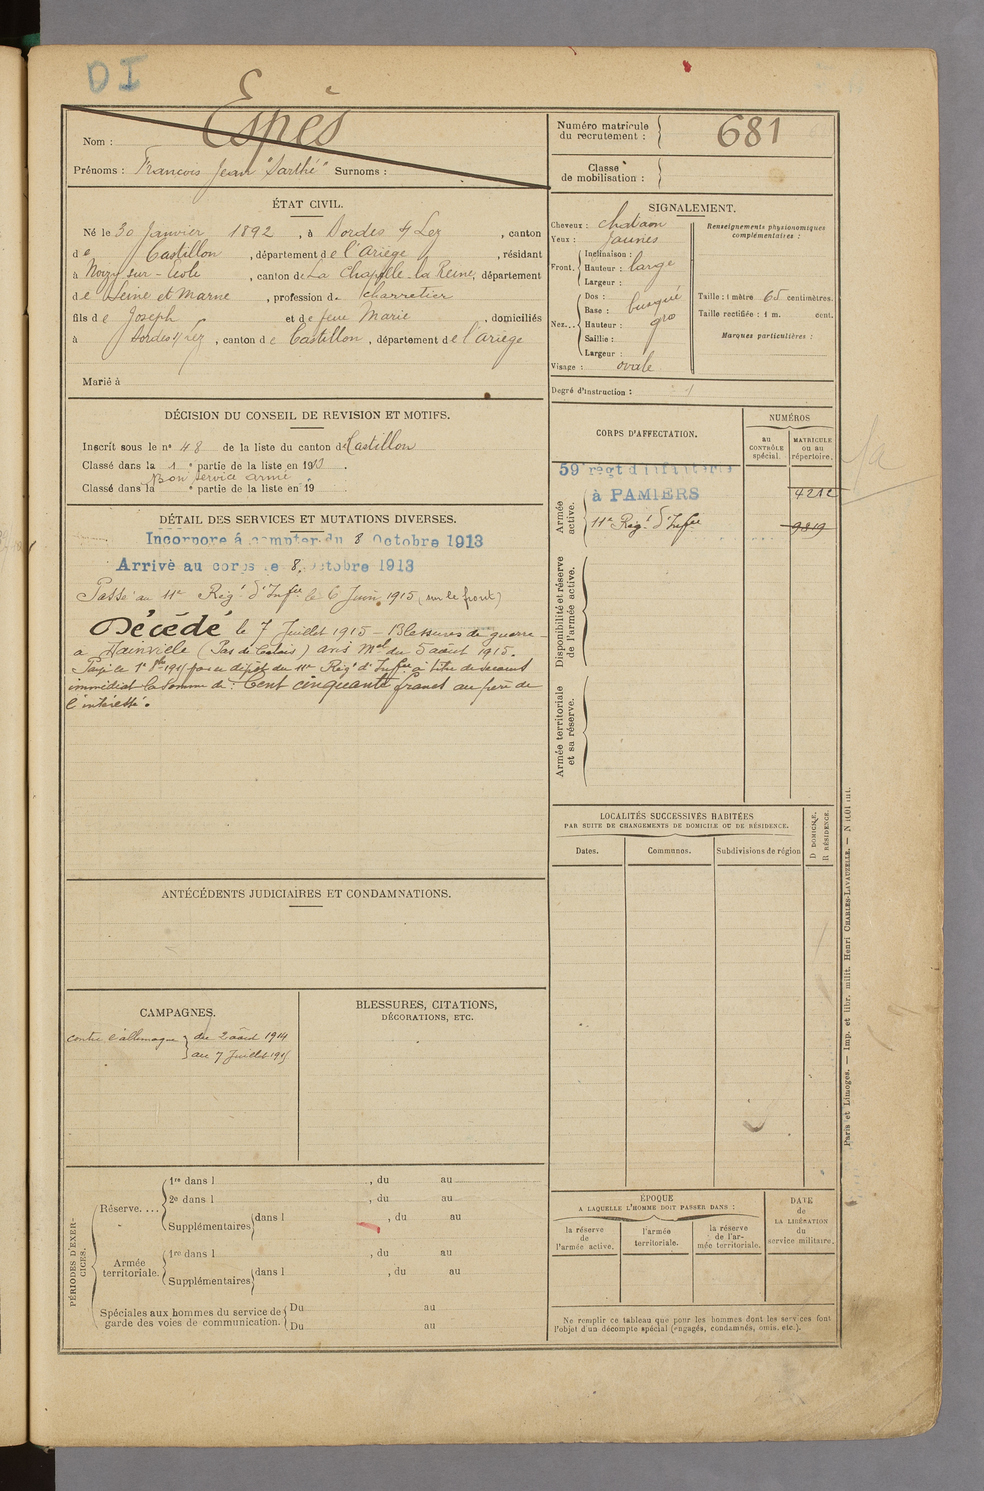 DI
Espès
Nom :
Prénoms : François Jean "Sarthé" Surnoms :
Numéro matricule du recrutement : 681
Classe de mobilisation :
ÉTAT CIVIL.
Né le 30 Janvier 1892, à Bordes s/ Lez, canton
de Castillon, département de l'Ariège, résidant
à Noizy-sur-École, canton de La Chapelle-la-Reine, département
de Seine et Marne, profession de charretier
fils de Joseph et de feue Marie, domiciliés
à Bordes s/ Lez, canton de Castillon, département de l'Ariège
Marié à
SIGNALEMENT.
Cheveux : chatain
Yeux : jaunes
Front. Inclinaison :
Hauteur : large
Largeur :
Nez... Dos : busqué
Base :
Hauteur : gro
Saillie :
Largeur :
Visage : ovale
Renseignements physionomiques complémentaires :
Taille : 1 mètre 65 centimètres.
Taille rectifiée : 1 m. cent.
Marques particulières :
Degré d'instruction :
DÉCISION DU CONSEIL DE REVISION ET MOTIFS.
Inscrit sous le n° 48 de la liste du canton de Castillon
Classé dans la 1e partie de la liste en 1913.
Bon service armé
Classé dans la e partie de la liste en 19
CORPS D'AFFECTATION.
NUMÉROS
AU CONTRÔLE spécial.
MATRICULE ou au répertoire.
Armée active.
59e régt d'infanterie
à PAMIERS 4212
11e Rég.t d'Infie 9819
Disponibilité et réserve de l'armée active.
Armée territoriale et sa réserve.
DÉTAIL DES SERVICES ET MUTATIONS DIVERSES.
Incorporé à compter du 8 Octobre 1913
Arrivé au corps le 8 Octobre 1913
Passé au 11e Rég.t d'Infie le 6 Juin 1915 (sur le front)
Décédé le 7 Juillet 1915 - Blessures de guerre
à Hainville (Pas de Calais) avis Mel du 5 août 1915.
Payé le 1er 1915 par le dépôt du 11e Rég.t d'Infie à titre de secours
immédiat la somme de : Cent cinquante francs au père de
l'intéressé.
LOCALITÉS SUCCESSIVES HABITÉES
PAR SUITE DE CHANGEMENTS DE DOMICILE OU DE RÉSIDENCE.
Dates.
Communes.
Subdivisions de région
D DOMICILE.
R RÉSIDENCE.
ANTÉCÉDENTS JUDICIAIRES ET CONDAMNATIONS.
CAMPAGNES.
contre l'allemagne du 2 août 1914
au 7 Juillet 1915
BLESSURES, CITATIONS, DÉCORATIONS, ETC.
PÉRIODES D'EXERCICES.
Réserve.... 1re dans l , du au
2e dans l , du au
Supplémentaires dans l , du au
Armée territoriale. 1re dans l , du au
Supplémentaires dans l , du au
Spéciales aux hommes du service de garde des voies de communication. Du au
Du au
ÉPOQUE
A LAQUELLE L'HOMME DOIT PASSER DANS :
la réserve de l'armée active.
l'armée territoriale.
la réserve de l'armée territoriale.
DATE de LA LIBÉRATION du service militaire.
Ne remplir ce tableau que pour les hommes dont les services font
l'objet d'un décompte spécial (engagés, condamnés, omis, etc.).
Paris et Limoges. — Imp. et libr. milit. Henri CHARLES-LAVAUZELLE. —